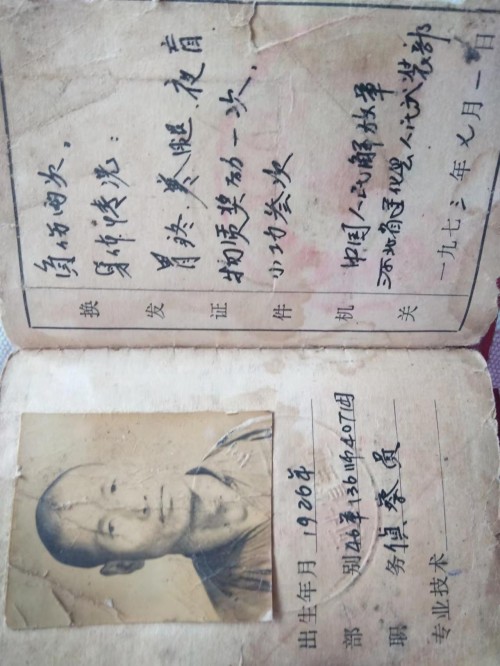 出生年月 1926年
部别 46军136师407团
职务 侦察员
专业技术
换发证件机关
负伤两次。
身体情况：
胃疼、寒腿、夜盲
物质奖励一次，
小功叁次
中国人民解放军
河北省遵化县人民武装部
一九七三年七月一日